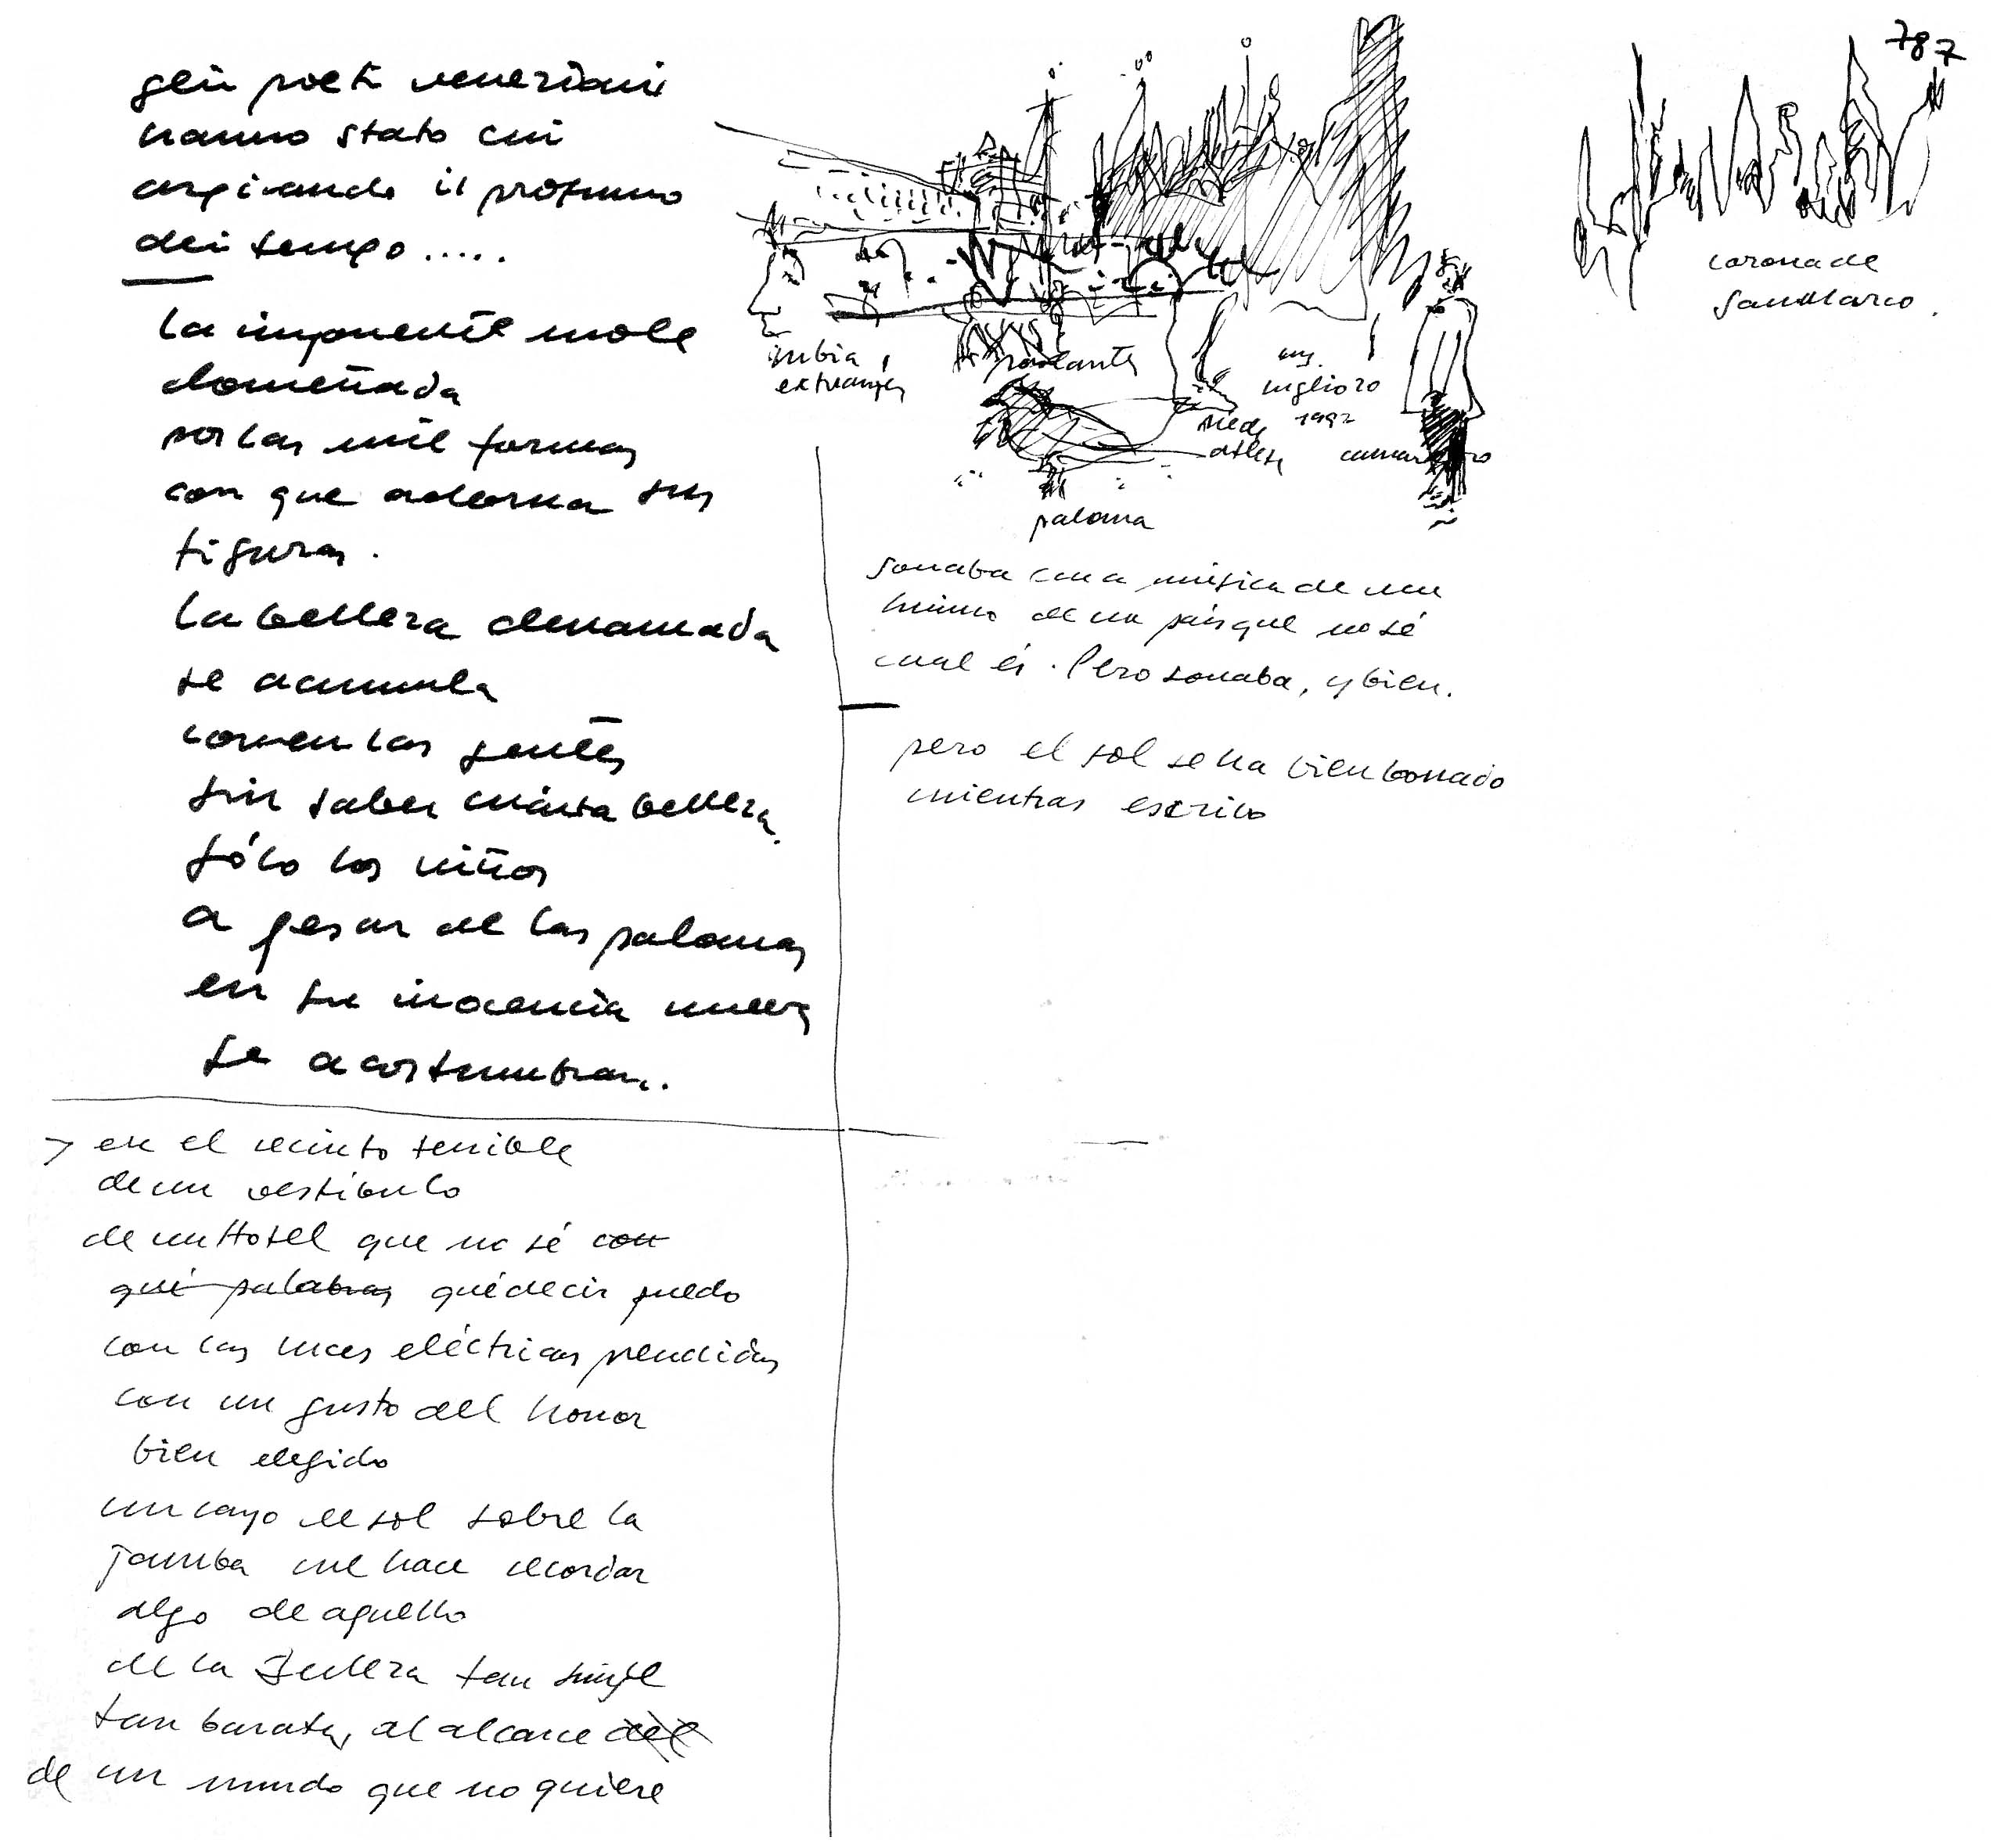 gли poeti veneziani
hanno stato cui
aspirando il profumo
dei tempo.....
La imponente mole
domeñada
por las mil formas
con que adorna sus
figuras.
La belleza derramada
se acumula
corren las gentes
sin saber cuánta belleza.
Sólo los niños
a pesar de las palomas
en su inocencia nueva
se acostumbran..
> en el recinto terrible
de un vestíbulo
de un Hotel que no sé con
qué palabras qué decir puedo
con las luces eléctricas prendidas
con un gusto del horror
bien elegido
un rayo de sol sobre la
jamba me hace recordar
algo de aquello
de la Belleza tan simple
tan barata, al alcance del
de un mundo que no quiere
787
corona de
San Marco.
rubia
extranjera
parlante
miglioro
1992
atleta
camarero
paloma
sonaba una música de un
himno de un país que no sé
cual és. Pero sonaba, y bien.
pero el sol se ha bien borrado
mientras escribo